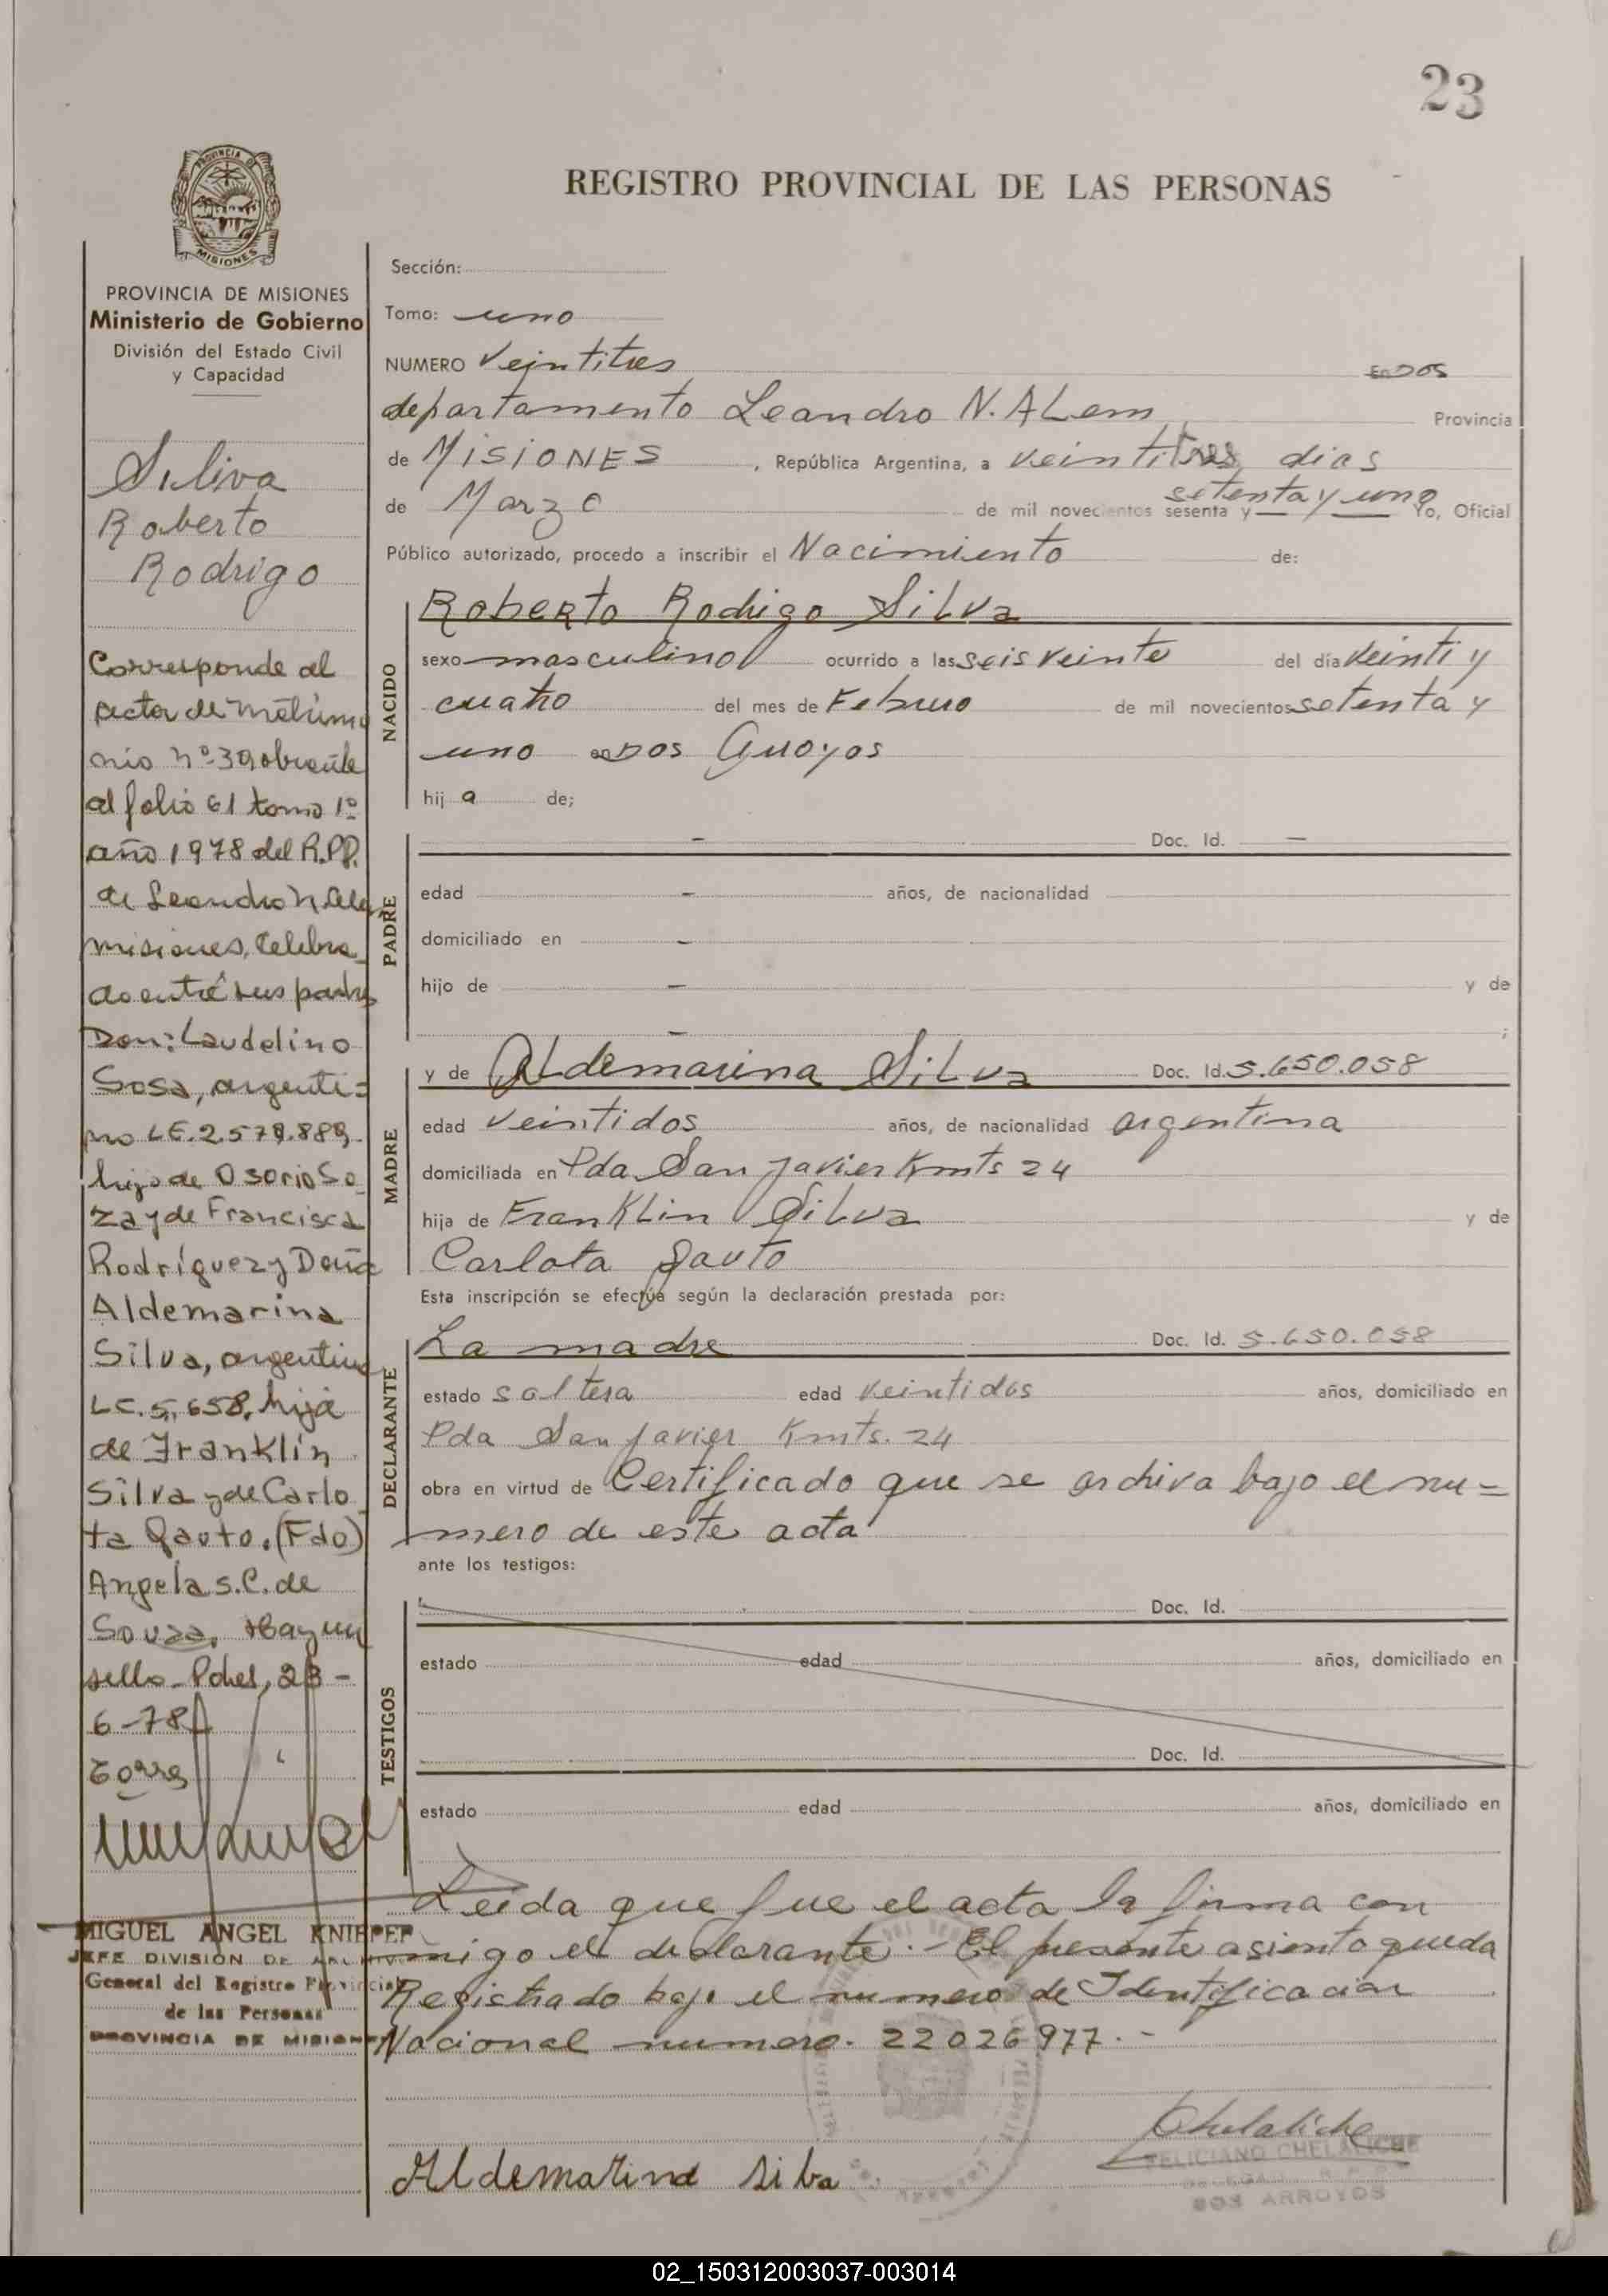 23
REGISTRO PROVINCIAL DE LAS PERSONAS
PROVINCIA DE
MISIONES
PROVINCIA DE MISIONES
Ministerio de Gobierno
División del Estado Civil
y Capacidad
Silva
Roberto
Rodrigo
Corresponde al
acta de matrimo
nio nº 39 obrante
al folio 61 tomo 1º
año 1978 del R.PP.
de Leandro N. Alem
misiones, celebra
do entre sus padres
Don: Laudelino
Sosa, argenti=
no LE. 2.579.889.
hijo de Osorio So
za y de Francisca
Rodríguez y Doña
Aldemarina
Silva, argentina
LC. 5.658, hija
de Franklin
Silva y de Carlo
ta Gauto. (Fdo)
Angela S.C. de
Souza. Hay un
sello - Pdas, 23-
6-78
Torres
MIGUEL ANGEL KNIEPER
JEFE DIVISION DE ARCHIVO
General del Registro Provincial
de las Personas
PROVINCIA DE MISIONES
Sección:
Tomo: uno
NUMERO Veintitres En DOS
departamento Leandro N. ALem Provincia
de MISIONES, República Argentina, a veintitres dias
de Marzo de mil novecientos sesenta y setenta y uno Yo, Oficial
Público autorizado, procedo a inscribir el Nacimiento de:
NACIDO
Roberto Rodrigo Silva
sexo masculino ocurrido a las seis veinte del día veinti y
cuatro del mes de Febrero de mil novecientos setenta y
uno en Dos Arroyos
hij a de;
PADRE
- Doc. Id. -
edad - años, de nacionalidad
domiciliado en -
hijo de - y de
- ;
MADRE
y de Aldemarina Silva Doc. Id. 5.650.058
edad veintidos años, de nacionalidad argentina
domiciliada en Pda San Javier Kmts 24
hija de Franklin Silva y de
Carlota Gauto
Esta inscripción se efectúa según la declaración prestada por:
DECLARANTE
La madre Doc. Id. 5.650.058
estado soltera edad veintidos años, domiciliado en
Pda San Javier Kmts. 24
obra en virtud de Certificado que se archiva bajo el nu=
mero de este acta
ante los testigos:
TESTIGOS
Doc. Id.
estado edad años, domiciliado en
Doc. Id.
estado edad años, domiciliado en
Leida que fue el acta la firma con
migo el declarante.- El presente asiento queda
Registrado bajo el numero de Identificacion
Nacional numero. 22026977.-
Aldemarina Silva
Chelaliche
FELICIANO CHELALICHE
DOS ARROYOS
02_150312003037-003014